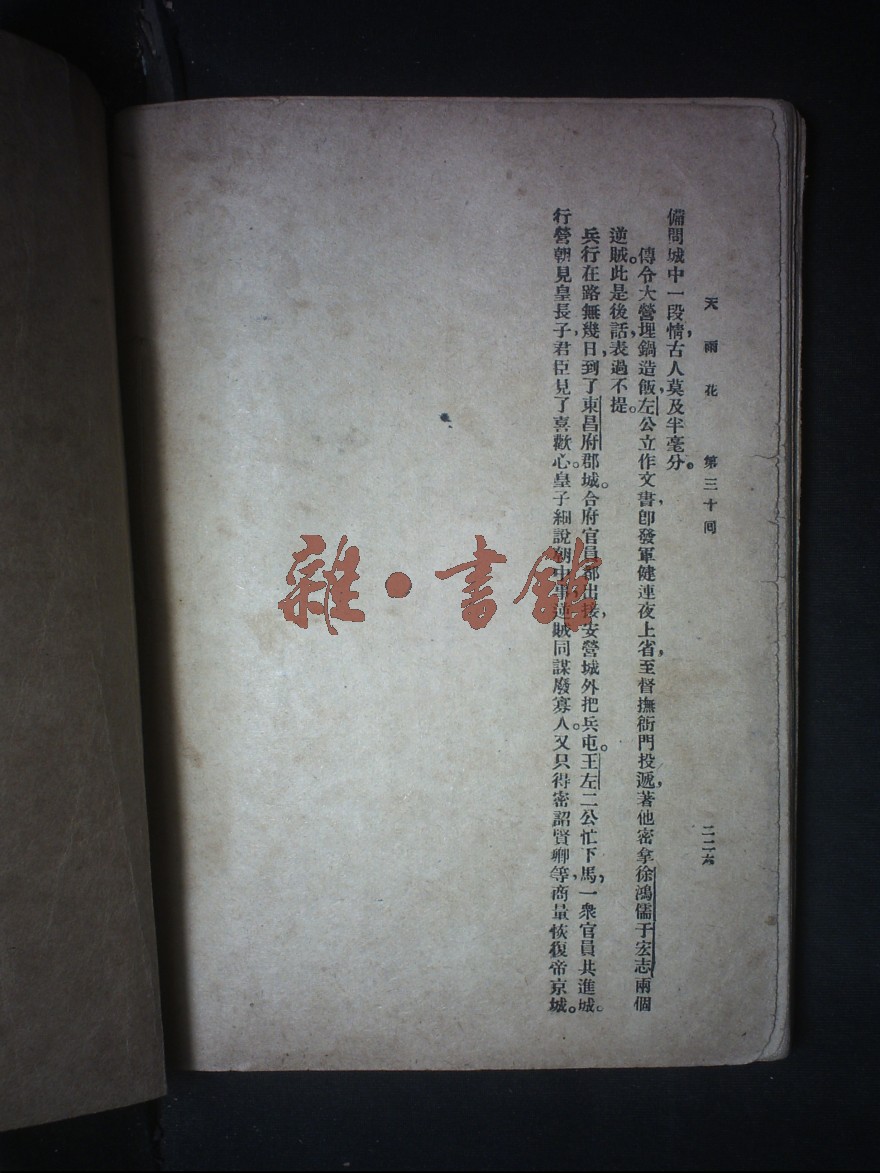 天雨花 第三十回 二二六
備問城中一段情，古人莫及半毫分。
傳令大營埋鍋造飯，左公立作文書，卽發軍健連夜上省，至督撫衙門投遞，著他密拿徐鴻儒于宏志兩個
逆賊。此是後話，表過不提。
兵行在路無幾日，到了東昌府郡城。合府官員都出接，安營城外把兵屯。王左二公忙下馬，一衆官員共進城。
行營朝見皇長子，君臣見了喜歡心。皇子細說朝中事，逆賊同謀廢寡人。又只得密詔賢卿等，商量恢復帝京城。
雜·書館